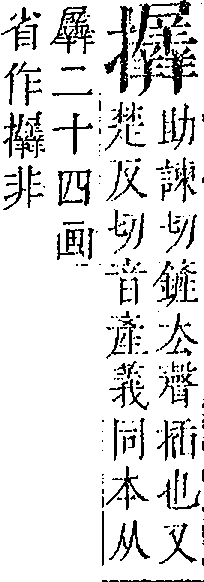 助諫切鏟厺聲插也又
楚反切音產義同本从
羼二十四画
省作非